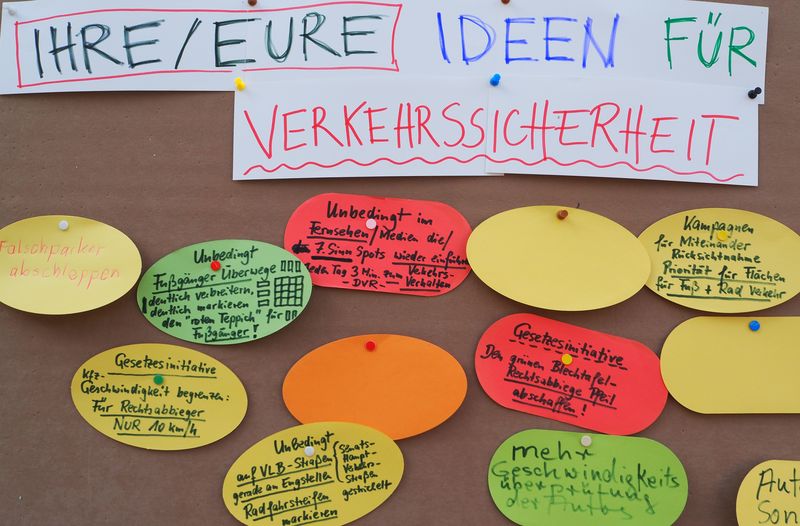 IHRE/EURE IDEEN FÜR
VERKEHRSSICHERHEIT
Falschparker
abschleppen
Unbedingt
Fußgänger Überwege
deutlich verbreitern,
deutlich markieren
den "roten Teppich" für
Fußgänger!
Unbedingt im
Fernsehen/Medien die/
7. Sinn Spots wieder einführen
Jede Tag 3 Min. zum Verkehrs-
-DVR- Verhalten
Kampagnen
für Miteinander
Rücksichtnahme
Priorität für Flächen
für Fuß + Rad Verkehr
Gesetzesinitiative
Kfz-
Geschwindigkeit begrenzen:
Für Rechtsabbieger
NUR 10 km/h
Gesetzesinitiative
Den grünen Blechtafel-
Rechtsabbiege Pfeil
abschaffen!
Unbedingt
auf VLB-Straßen
gerade an Engstellen
Radfahrstreifen
markieren
Senats-
Haupt-
Verkehrs-
Straßen
gestrichelt
mehr
Geschwindigkeits
überprüfung
der Autos
Aut
Son